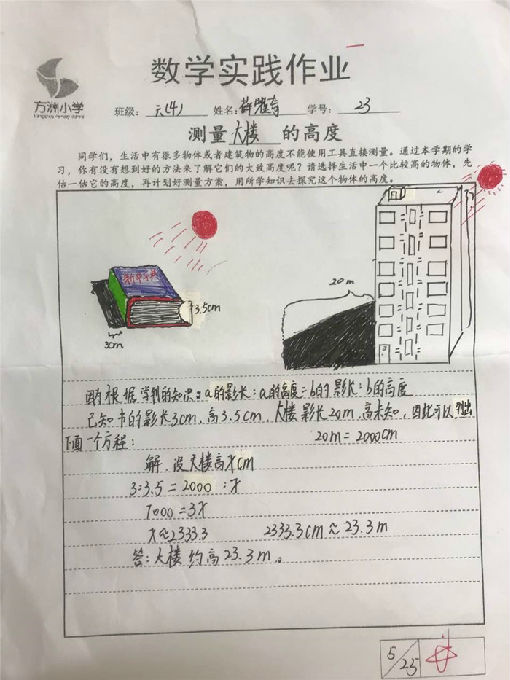 数学实践作业
方洲小学
班级：六(4) 姓名： 学号：23
测量大楼的高度
同学们，生活中有很多物体或者建筑物的高度不能使用工具直接测量。通过本学期的学
习，你有没有想到好的方法来了解它们的大致高度呢？请选择生活中一个比较高的物体，先
估一估它的高度，再计划好测量方案，用所学知识去探究这个物体的高度。
20m
3.5cm
3cm
根据学到的知识：a的影长：a的高度=b的影长：b的高度
已知书的影长3cm，高3.5cm，大楼影长20m，高未知，因此可以列出
下面一个方程： 20m=2000cm
解：设大楼高xcm
3:3.5=2000:x
7000=3x
x≈2333.3 2333.3cm≈23.3m
答：大楼约高23.3m。
5/25